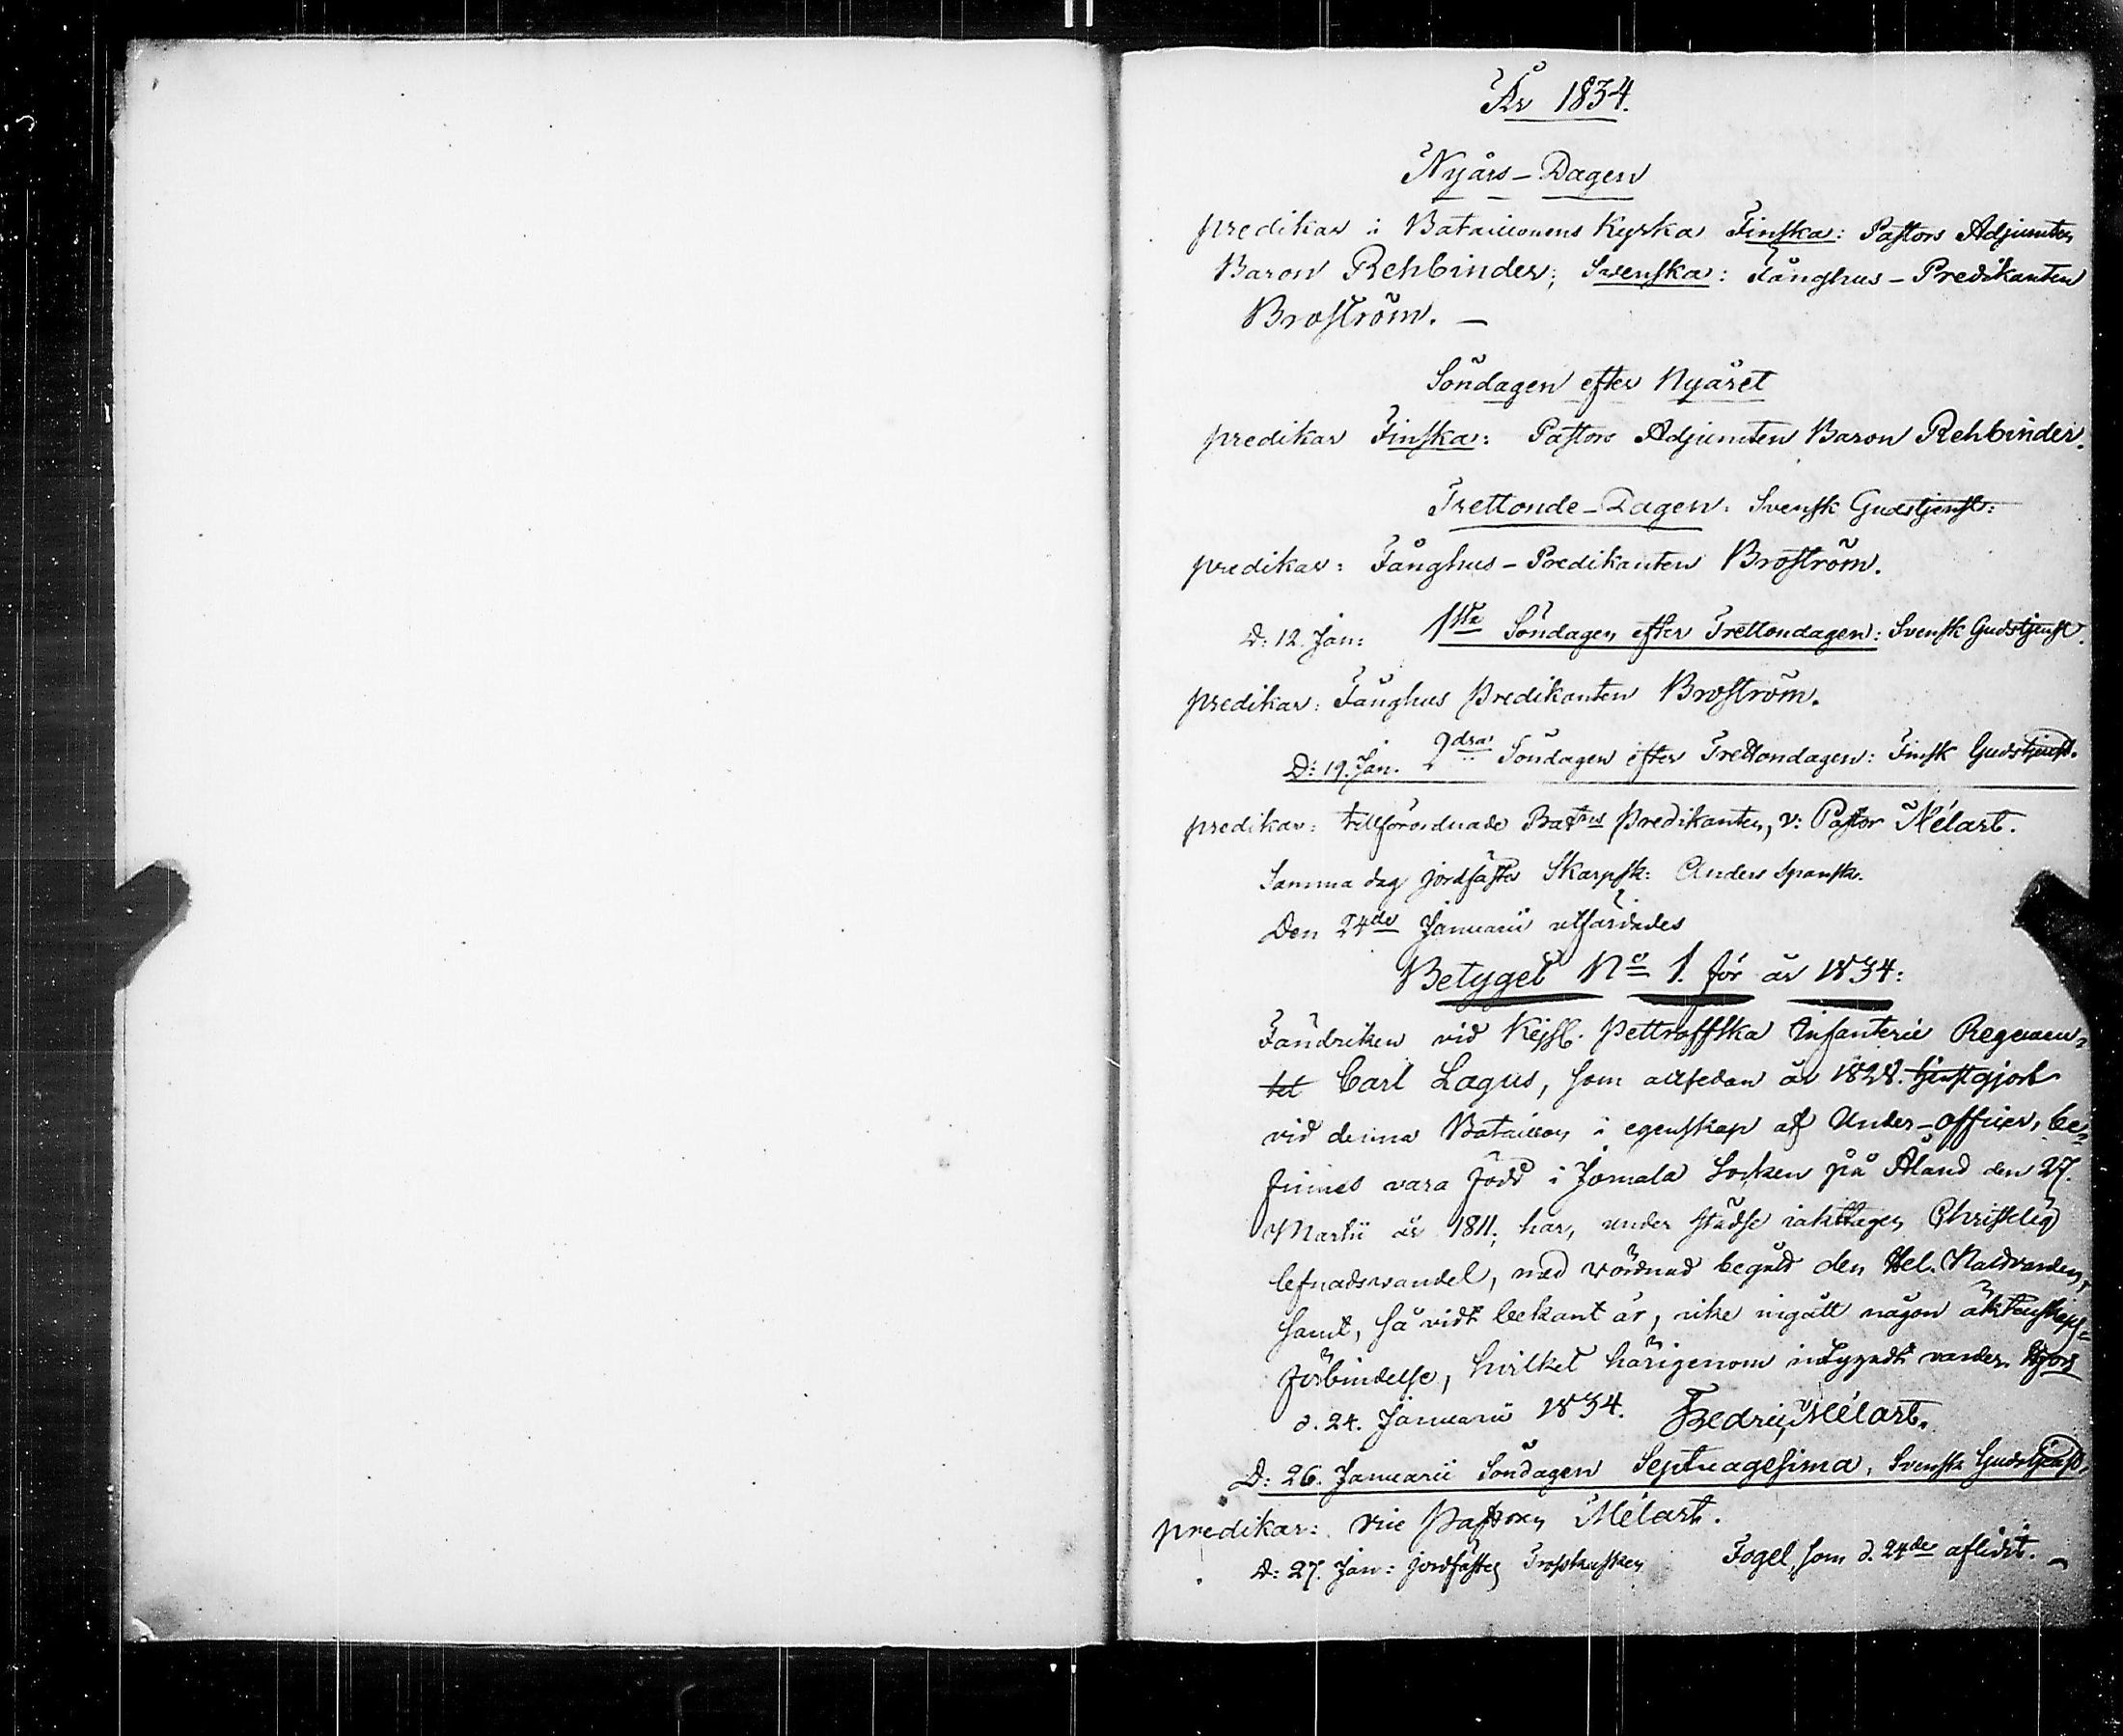 År 1834.
Nyårs-Dagen
predikar i Bataillonens Kyrka Finska: Pastors Adjuncten
Baron Rehbinder; Svenska: Fånghus-Predikanten
Broström. —
Söndagen efter Nyåret
predikar Finska: Pastors Adjuncten Baron Rehbinder.
Trettonde-Dagen. Svensk Gudstjenst:
predikar: Fånghus-Predikanten Broström.
D: 12. Jan: 1sta Söndagen efter Trettondagen: Svensk Gudstjenst.
predikar: Fånghus Predikanten Broström.
D: 19. Jan. 2dra Söndagen efter Trettondagen: Finsk Gudstjenst.
predikar: tillförordnade Batns Predikanten, v: Pastor Mélart.
Samma dag jordfästes Skarpsk: Anders Spansk.
Den 24de Januarii utfärdades
Betyget No 1. för år 1834:
Fändriken vid Kejsl. Pettroffska Infanterie Regemen-
tet Carl Lagus, som allsedan år 1828. tjenstgjort
vid denna Bataillon i egenskap af Under-officer, be-
finnes vara född i Jomala Socken på Åland den 27.
Martii år 1811; har, under städse iakttagen Christelig
lefnadsvandel, med vördnad begått den Hel. Nattvarden,
samt, så vidt bekant är, icke ingått någon äktenskaps-
förbindelse, hvilket härigenom intygadt varder. Hfors
d. 24. Januarii 1834. Fredric Mélart.
D: 26. Januarii Söndagen Septuagesima, Svensk Gudstjenst.
predikar: vice Pastorn Mélart.
D: 27. Jan: jordfästes Trosskusken Fogel, som d. 24de aflidit. —